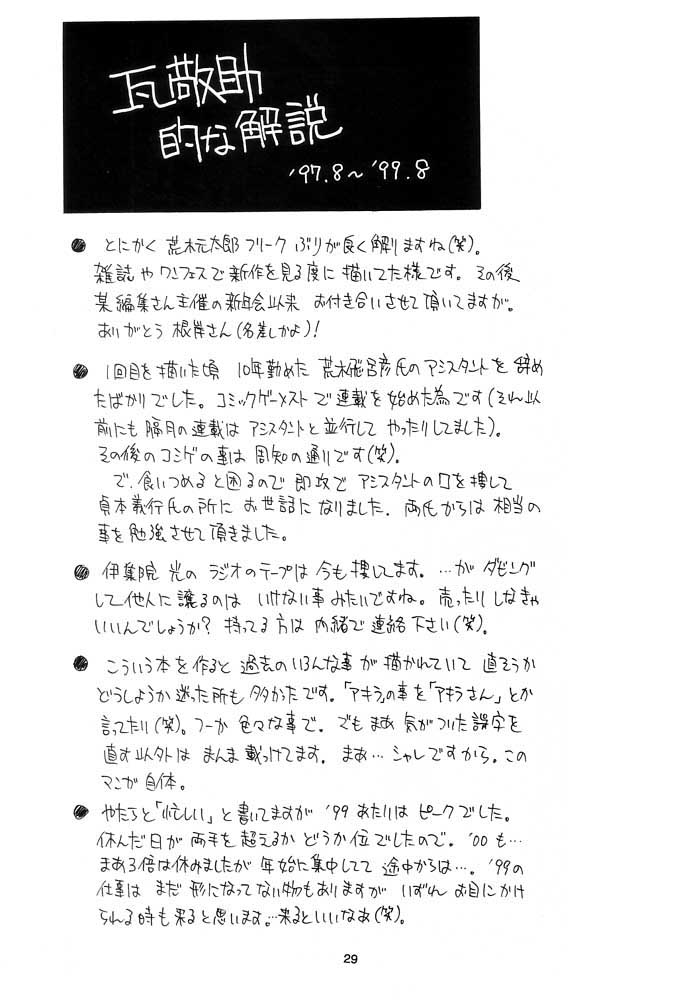 瓦敬助
的な解説
'97.8～'99.8
● とにかく 荒木元太郎フリーク ぶりが良く解りますね(笑)。
雑誌や ワンフェスで新作を見る度に 描いてた様です。その後
某編集さん主催の新年会以来 お付き合いさせて頂いてますが。
ありがとう 根岸さん(名差しかよ)!
● 1回目を描いた頃 10年勤めた 荒木飛呂彦氏の アシスタントを 辞め
たばかりでした。コミックゲーメストで 連載を 始めた為です(それ以
前にも 隔月の連載は アシスタントと並行して やったりしてました)。
その後のコミゲの事は 周知の通りです(笑)。
で、食いつめると困るので 即攻で アシスタントの口を捜して
貞本義行氏の所に お世話になりました。両氏からは 相当の
事を勉強させて頂きました。
● 伊集院 光の ラジオのテープは 今も 捜してます。…が ダビング
して他人に譲るのは いけない事みたいですね。売ったりしなきゃ
いいんでしょうか? 持ってる方は 内緒で連絡下さい(笑)。
● こういう本を作ると 過去のいろんな事が 描かれていて 直そうか
どうしようか 迷った所も 多かたです。「アキラ」の事を「アキラさん」とか
言ってたり(笑)。つーか 色々な事で。でもまあ 気がついた誤字を
直す以外は まんま 載っけてます。まあ… シャレですから。この
マンガ自体。
● やたらと「忙しい」と書いてますが '99あたりは ピークでした。
休んだ日が 両手を超えるか どうか位でしたので。'00も…
まあ3倍は休みましたが 年始に集中してて 途中からは…。'99の
仕事は まだ 形になってない物もありますが いずれ お目にかけ
られる時も来ると思います。…来るといいなあ(笑)。
29